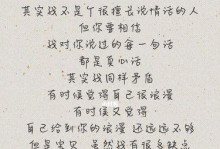 其实我不是个很擅长说情话的人
但你要相信
我对你说过的每一句话
都是真心话
其实我同样矛盾
有时候觉得自己很浪漫
有时候又觉得
自己给到你的浪漫 还远远不够
但是宝贝 虽然我有很多缺点